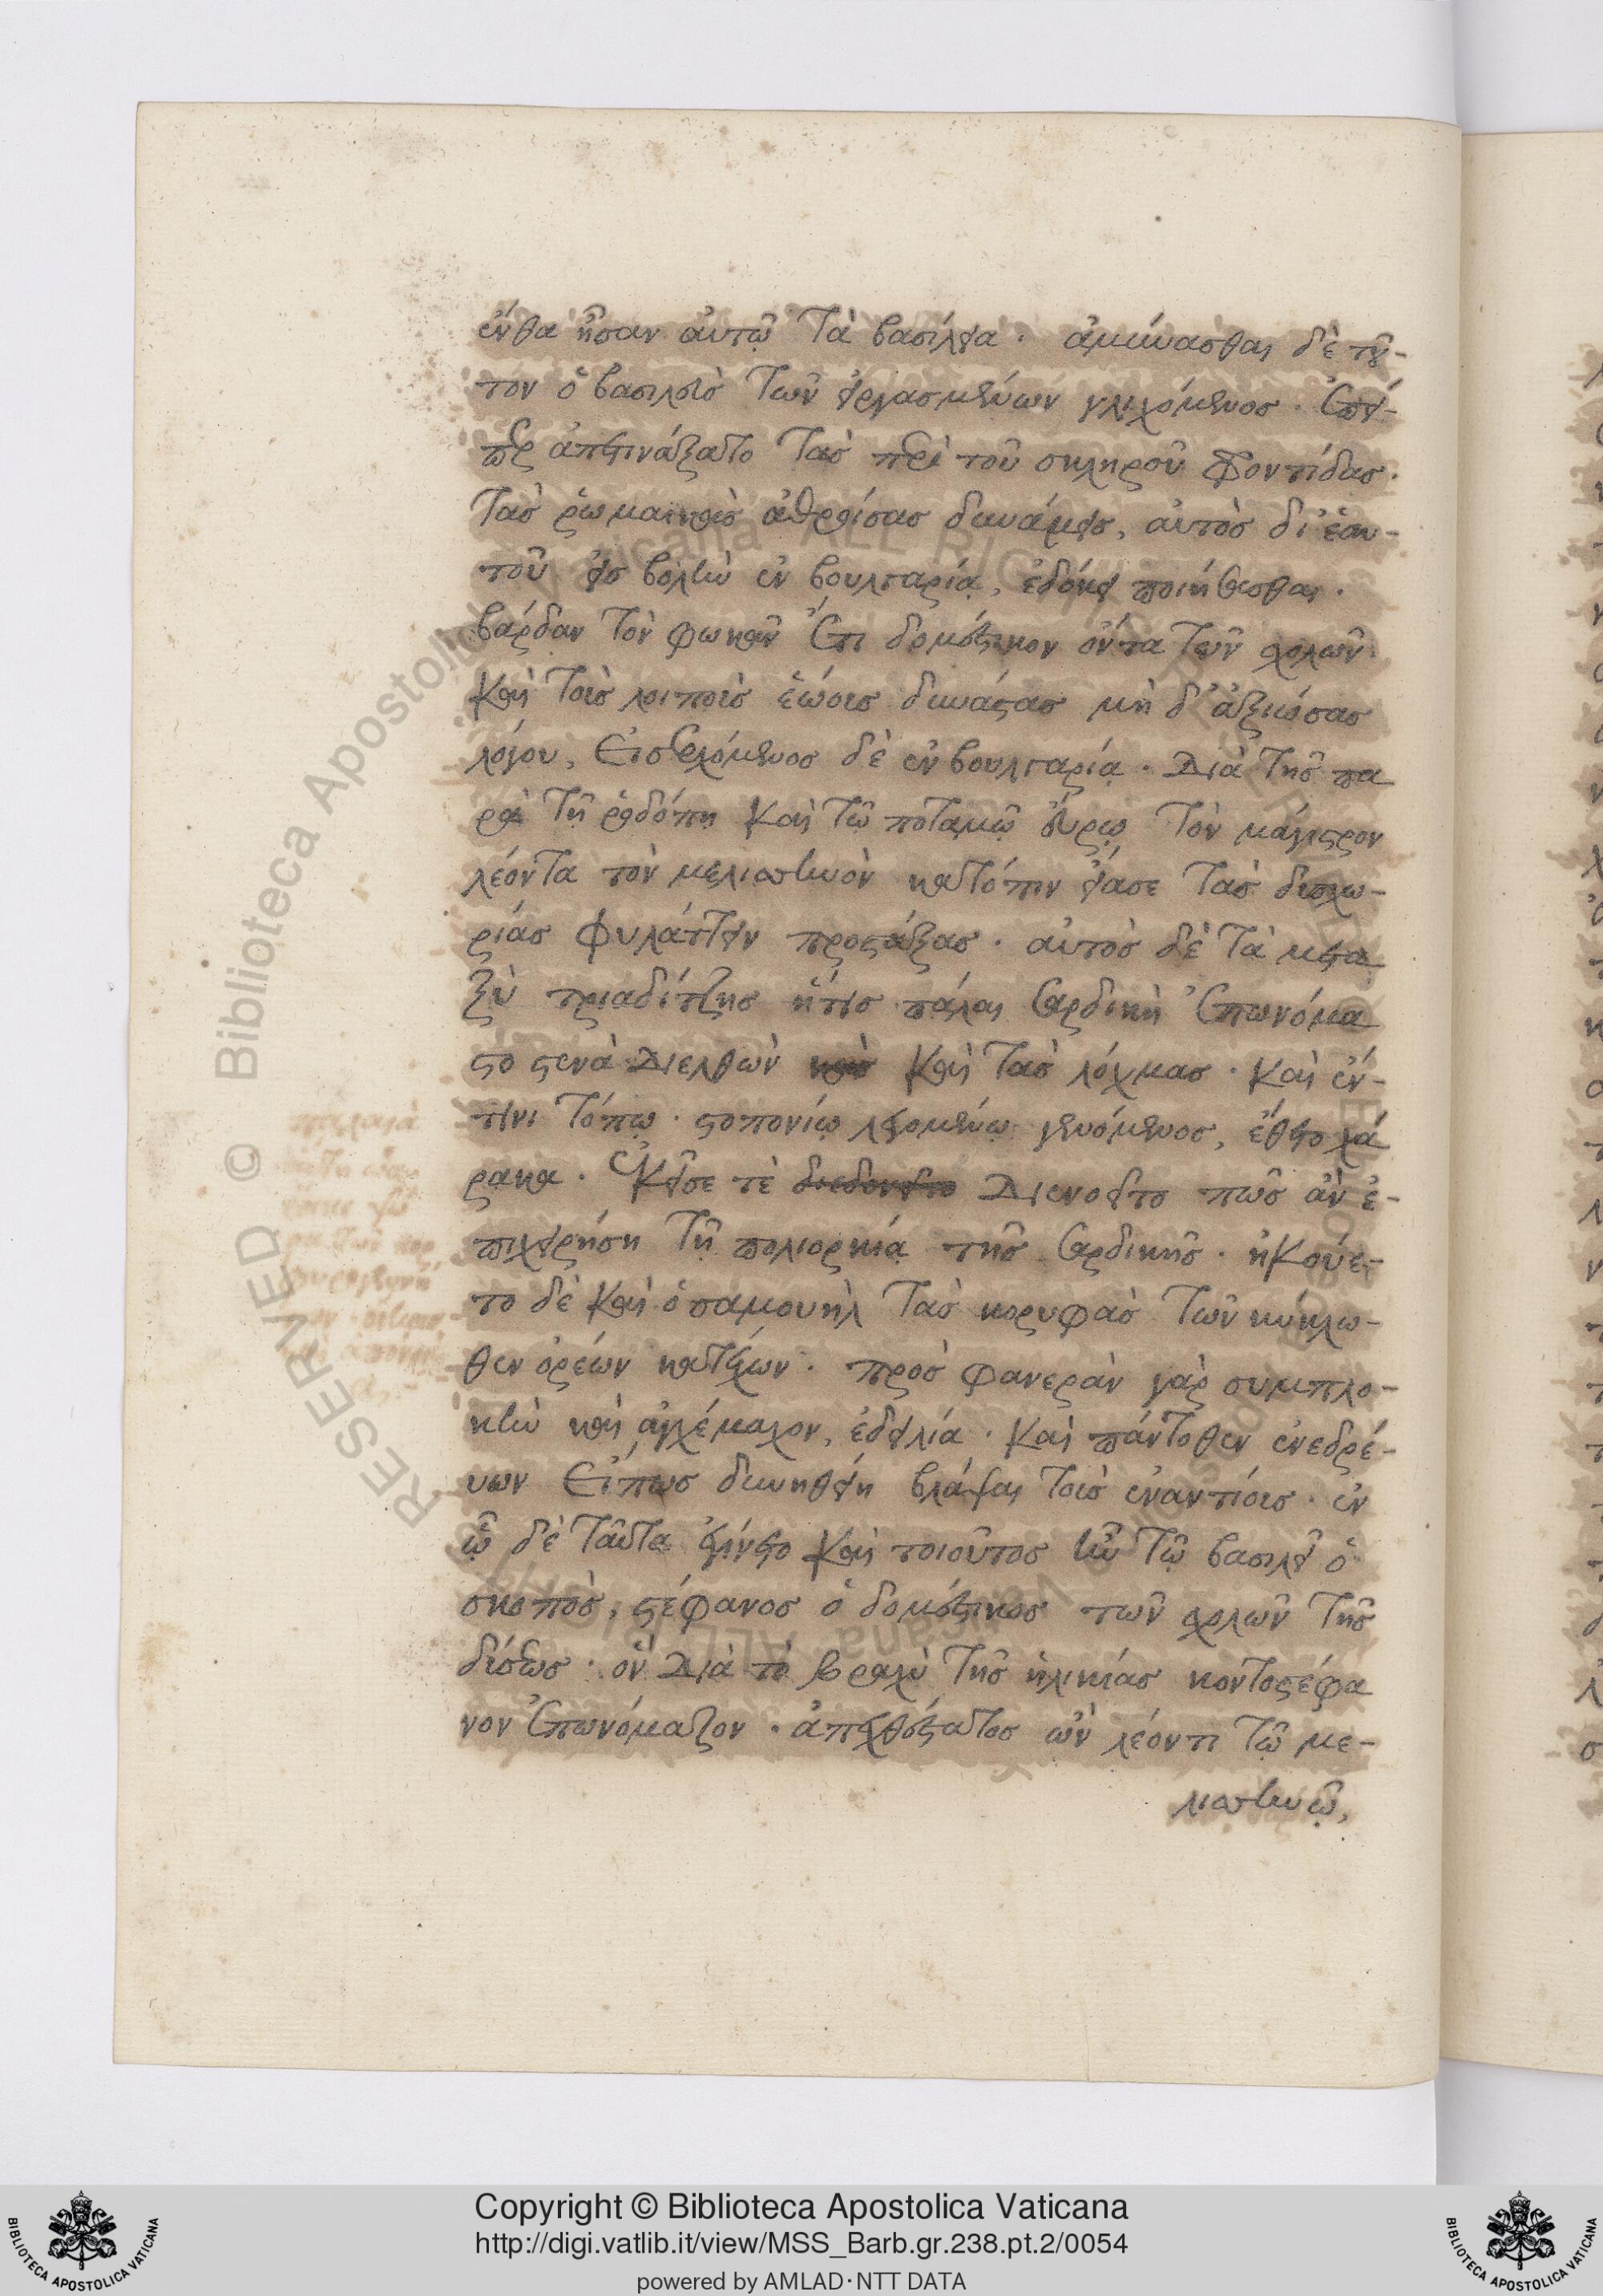 ἔνθα ἦσαν αὐτῷ τὰ βασίλεια · ἀμύνασθαι δὲ τοῦ-
τον ὁ βασιλεὺς τῶν εἰργασμένων γλιχόμενος · ἐπεί-
περ ἀπετινάξατο τὰς περὶ τοῦ σκληροῦ φροντίδας ·
τὰς ῥωμαικὰς ἀθροίσας δυνάμεις, αὐτὸς δι' ἑαυ-
τοῦ εἰσβολὴν ἐν βουλγαρίᾳ, ἐδόκει ποιήσεσθαι ·
βάρδαν τὸν φωκᾶν ἔτι δομέστικον ὄντα τῶν σχολῶν
καὶ τοὺς λοιποὺς ἑώους δυνάστας μὴ δ' ἀξιώσας
λόγου, εἰσερχόμενος δὲ ἐν βουλγαρίᾳ · διὰ τῆς πα
ρὰ τῇ ῥοδόπῃ καὶ τῷ ποταμῷ εὔρῳ τὸν μάγιστρον
λέοντα τὸν μελισσηνὸν κατόπιν εἴασε τὰς δυσχω-
ρίας φυλάττειν προστάξας · αὐτὸς δὲ τὰ μετα
ξὺ τριαδίτζης ἥτις πάλαι σαρδικὴ ἐπωνόμα
στο στενὰ διελθὼν καὶ τὰς λόχμας · καὶ ἔν-
τινι τόπῳ · στοπονίῳ λεγομένῳ γενόμενος, ἔθετο χά
ρακα · κεῖσε τὲ διενοεῖτο πῶς ἂν ἐ-
πιχειρήσῃ τῇ πολιορκίᾳ τῆς σαρδικῆς · ἠκούε-
το δὲ καὶ ὁ σαμουὴλ τὰς κορυφὰς τῶν κύκλω-
θεν ὀρέων κατέχων · πρὸς φανερὰν γὰρ συμπλο-
κὴν καὶ ἀγχέμαχον, ἐδειλία · καὶ πάντοθεν ἐνεδρέ-
υων εἴπως δυνηθείη βλάψαι τοὺς ἐναντίους · ἐν
ᾧ δὲ ταῦτα ἐγίνετο καὶ τοιοῦτος ἦν τῷ βασιλεῖ ὁ
σκοπὸς, στέφανος ὁ δομέστικος τῶν σχολῶν τῆς
δύσεως · ὃν διὰ τὸ βραχὺ τῆς ἡλικίας κοντοστέφα
νον ἐπωνόμαζον · ἀπεχθέστατος ὢν λέοντι τῷ με-
λισσηνῷ,
Copyright © Biblioteca Apostolica Vaticana
http://digi.vatlib.it/view/MSS_Barb.gr.238.pt.2/0054
powered by AMLAD·NTT DATA